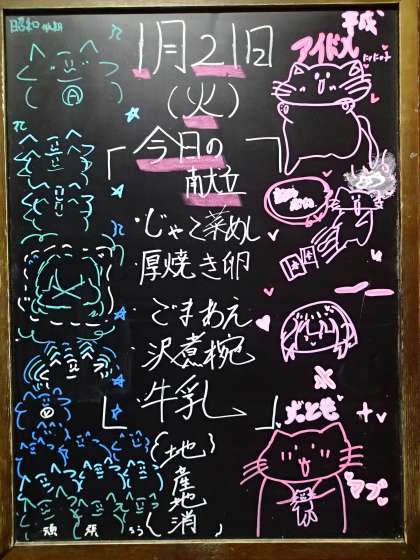 昭和
平成
アイドル
1月21日
(火)
今日の
献立
・じゃこ菜めし
・厚焼き卵
・ごまあえ
・沢煮椀
・牛乳
(地
産
地
消)
A
マブ